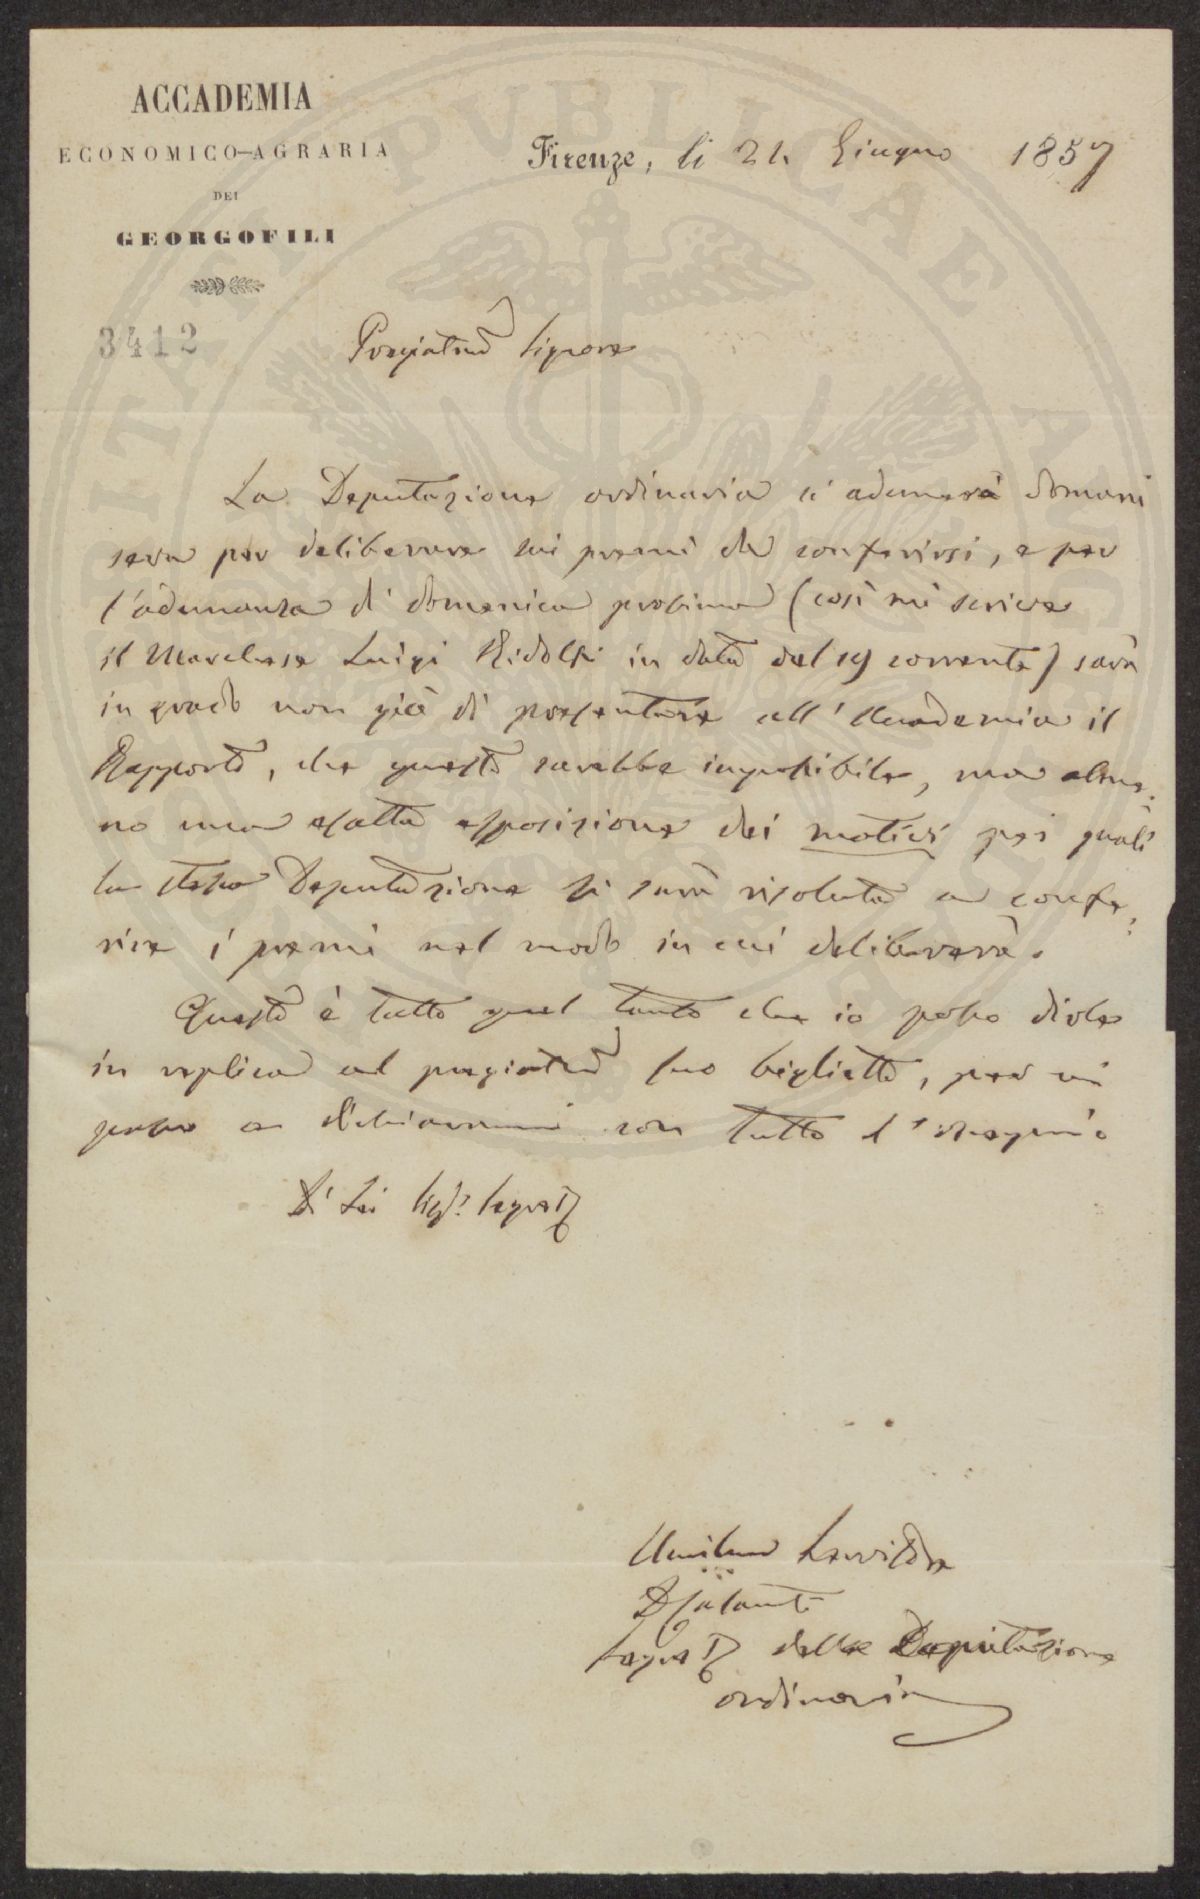 ACCADEMIA
ECONOMICO-AGRARIA
DEI
GEORGOFILI
Firenze, li 21. Giugno 1857
3412
Pregiatmo Signore
La Deputazione ordinaria si adunerà domani
sera per deliberare sui premi da conferirsi, e per
l'adunanza di domenica prossima (così mi scrive
il Marchese Luigi Ridolfi in data del 19 corrente) sarà
in grado non già di presentare all'Accademia il
Rapporto, che questo sarebbe impossibile, ma alme-
no una esatta esposizione dei motivi pei quali
la stessa Deputazione si sarà risoluta a confe-
rire i premi nel modo in cui delibererà.
Questo è tutto quel tanto che io posso dirle
in replica al pregiatmo suo biglietto, e
passo a dichiararmi con tutto l'ossequio
Di Lei Sigr. Segrets
Umilmo Servitore
Segret della Deputazione
ordinaria